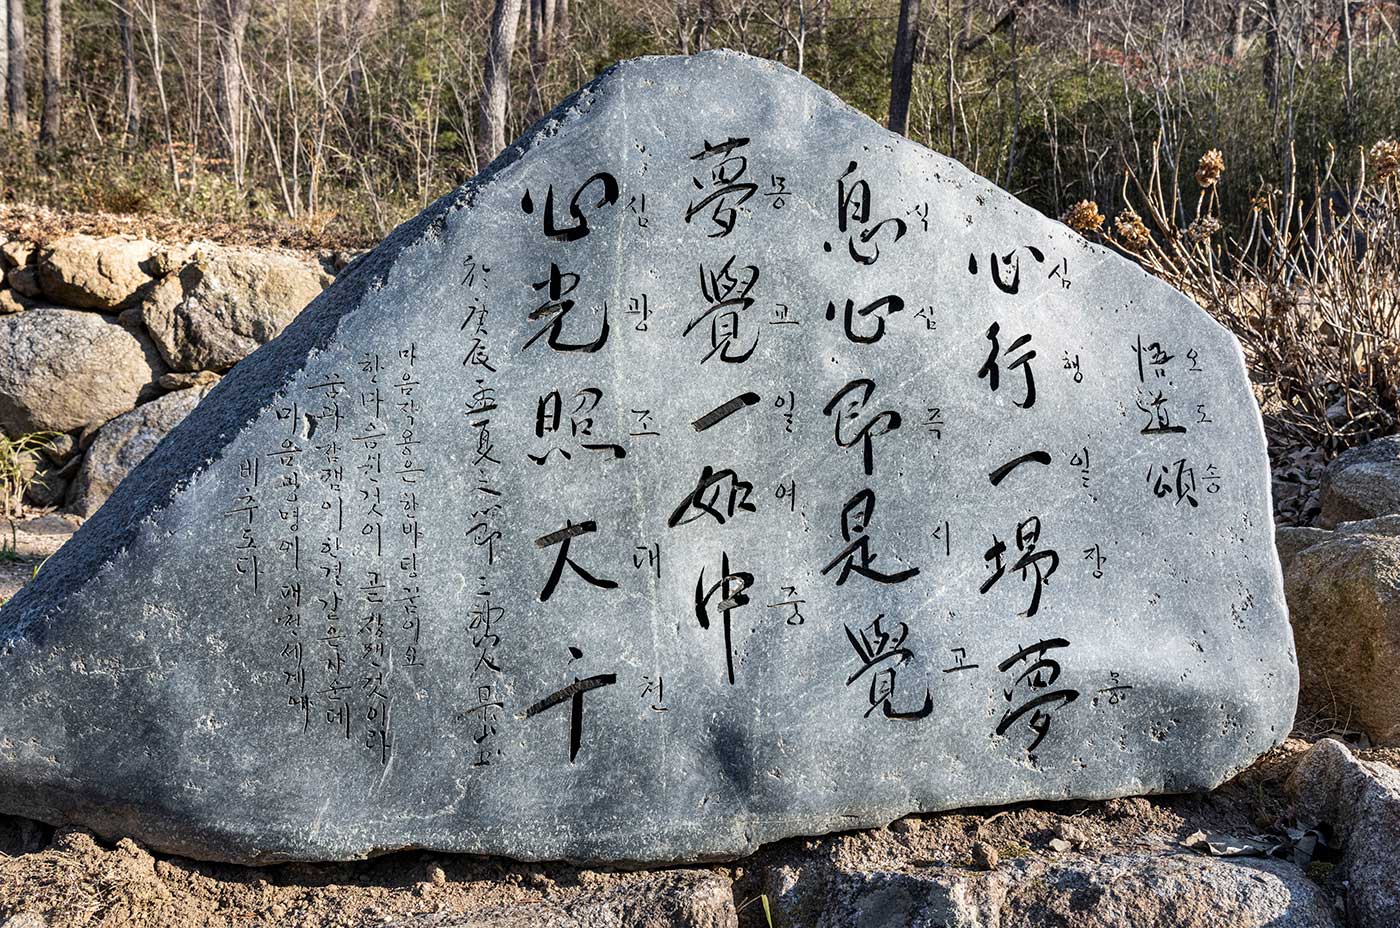 悟道頌
오도송
心行一場夢
심행일장몽
息心即是覺
식심즉시교
夢覺一如中
몽교일여중
心光照大千
심광조대천
於庚辰孟夏之節三
마음작용은한바탕꿈이요
한마음쉰것이곧잠깬것이라
꿈과잠깸이한결같은가운데
마음광명이대천세계에
비추도다